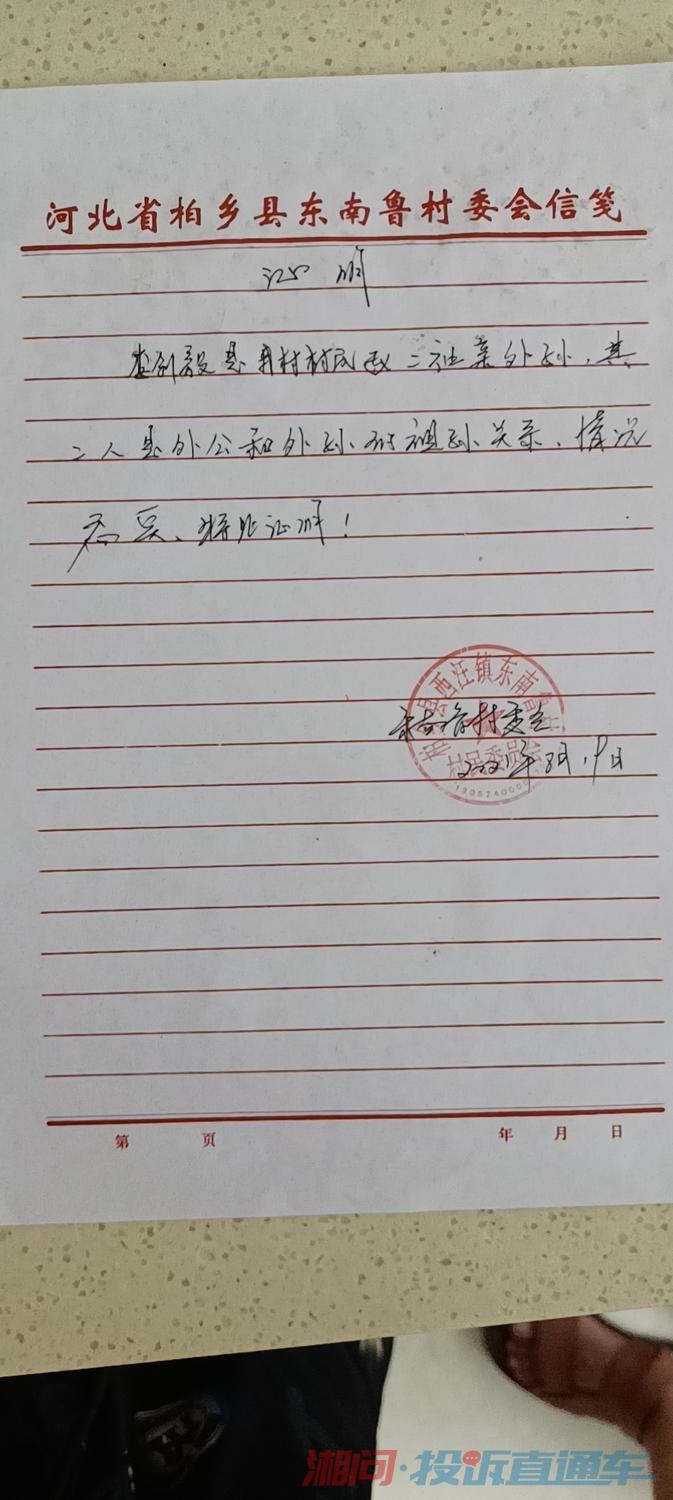 河北省柏乡县东南鲁村委会信笺
证明
是我村村民 二 亲外孙、其
二人是外公和外孙的祖孙关系、情况
属实、特此证明！
柏乡县西汪镇东南鲁村
村民委员会
东南鲁村委会
2021年8月19日
第 页 年 月 日
湘问·投诉直通车